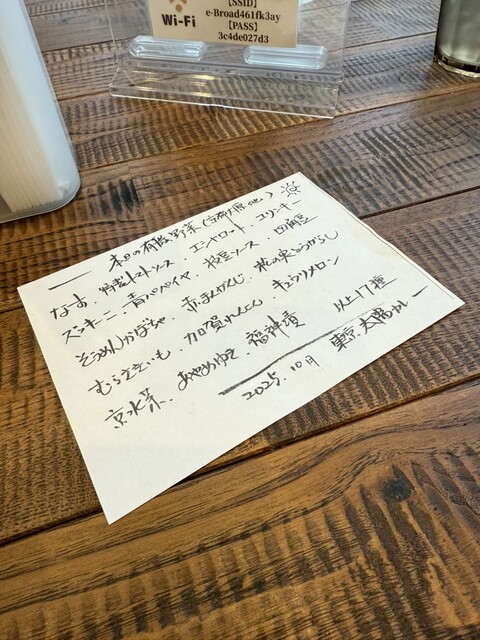 【SSID】
Wi-Fi e-Broad461fk3ay
【PASS】
3c4de027d3
一 本日の有機野菜(京都大原他)
なす、特製トマトソース、エシャロット、コリンキー
ズッキーニ、青パパイヤ、枝豆ソース、四角豆
そうめんかぼちゃ、赤まんがんじ、秋の実とうがらし
むらさきいも、加賀れんこん、キュウリメロン
京水菜、あやめゆき、福神漬 以上17種
2025.10月 東京太陽カレー